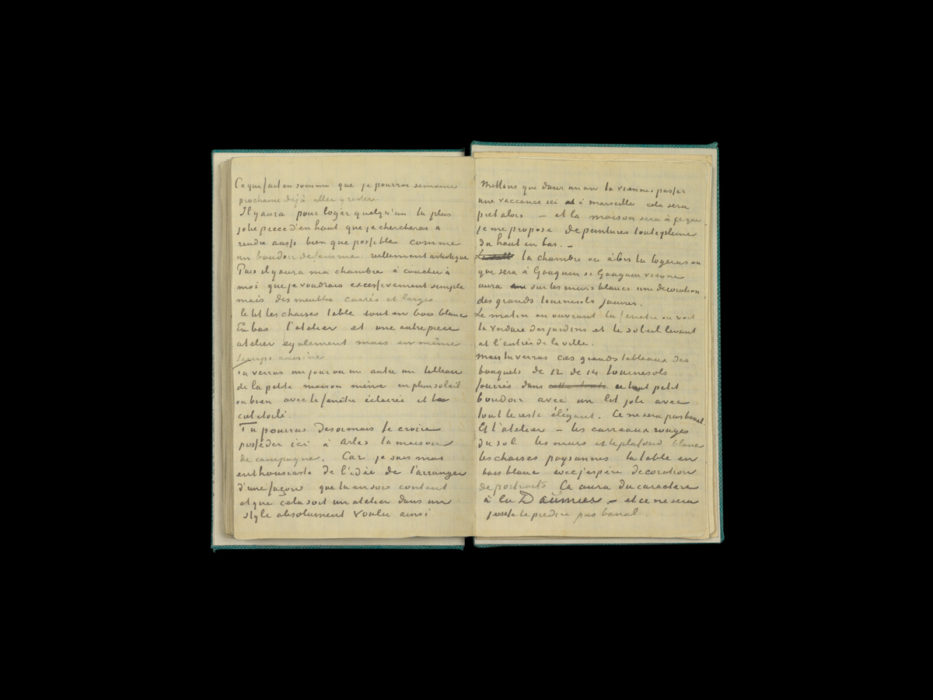 Ce qui fait en somme que je pourrai semaine
prochaine déjà aller y rester.
Il y aura pour loger quelqu'un la plus
jolie pièce d'en haut que je chercherai à
rendre aussi bien que possible comme
un boudoir de femme réellement artistique
Puis il y aura ma chambre à coucher à
moi que je voudrais excessivement simple
mais des meubles carrés et larges
le lit les chaises table tout en bois blanc
En bas l'atelier et une autre pièce
atelier egalement mais en même
temps cuisine
Tu verras un jour ou un autre un tableau
de la petite maison même en plein soleil
ou bien avec la fenêtre éclairée et le
ciel étoilé
Tu pourras desormais te croire
posséder ici à Arles ta maison
de campagne. Car je suis moi
enthousiaste de l'idée de l'arranger
d'une façon que tu en sois content
et que cela soit un atelier dans un
style absolument voulu ainsi
Mettons que dans un an tu viennes passer
une vaccance ici et à marseille cela sera
pret alors – et la maison sera à
je me propose de peintures toute pleine
du haut en bas. –
la chambre ou alors tu logeras ou
que sera à Gauguin si Gauguin vienne
aura sur les murs blancs une decoration
des grands tournesols jaunes.
Le matin en ouvrant la fenetre on voit
la verdure des jardins et le soleil levant
et l'entrée de la ville.
Mais tu verras ces grands tableaux des
bouquets de 12, de 14 tournesols
fourrés dans ce tout petit
boudoir avec un lit joli avec
tout le reste élégant. Ce ne sera pas banal
Et l'atelier – les carreaux rouges
du sol les murs et le plafond blancs
les chaises paysannes la table en
bois blanc avec j'espère decoration
de portraits Ça aura du caractere
à la Daumier – et ce ne sera
j'ose le predire pas banal